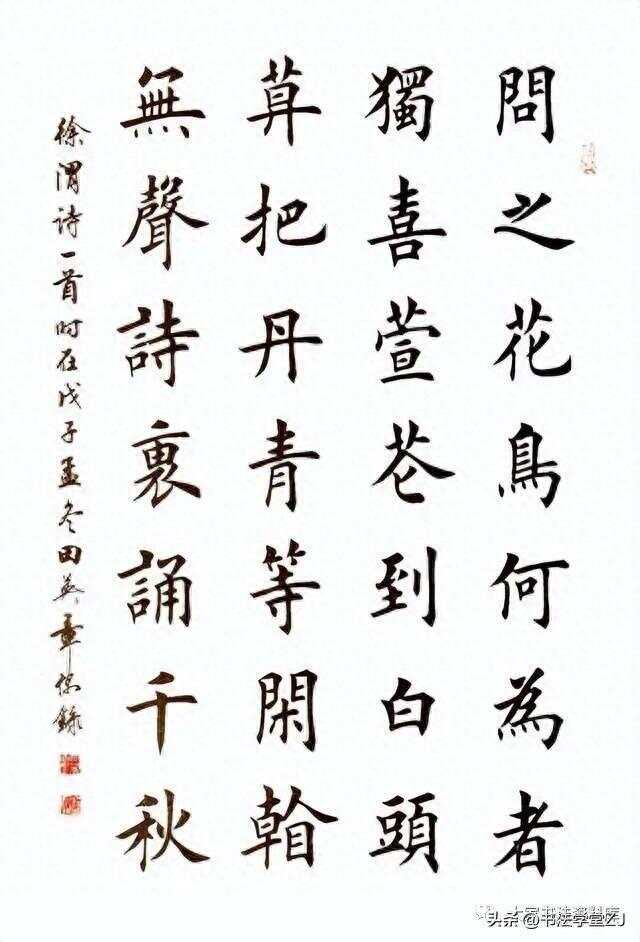 問之花鳥何為者
獨喜萱芲到白頭
莫把丹青等閑看
無聲詩裏誦千秋
徐渭诗一首时在戊子孟冬田英章錄
头条@书法学堂ZJ